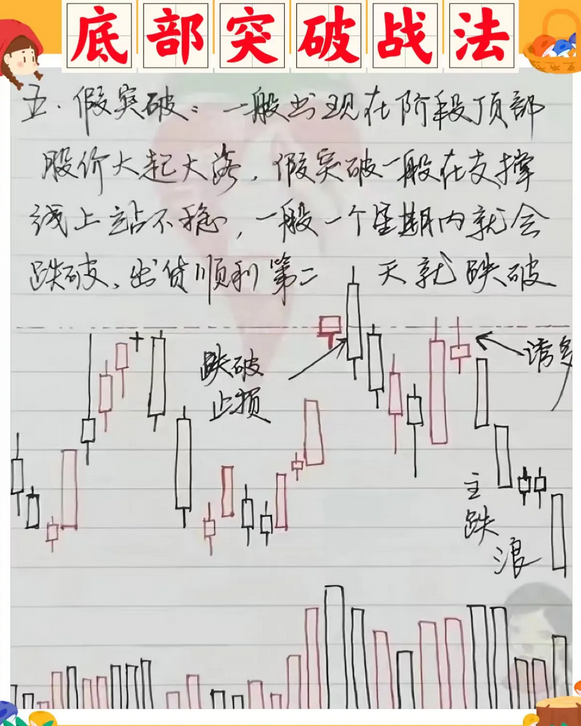 底部突破战法
五.假突破:一般出现在阶段顶部
股价大起大落,假突破一般在支撑
线上站不稳,一般一个星期内就会
跌破、出货顺利第二 天就跌破
跌破
止损
诱多
主
跌
浪